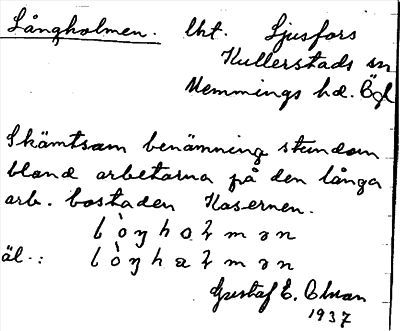 Långholmen. lht. Ljusfors
Kullerstads sn
Memmings hd. Ögl
Skämtsam benämning stundom
bland arbetarna på den långa
arb. bostaden Kasernen.
lòŋholmən
äl.: lòŋhalmən
Gustaf E.
1937